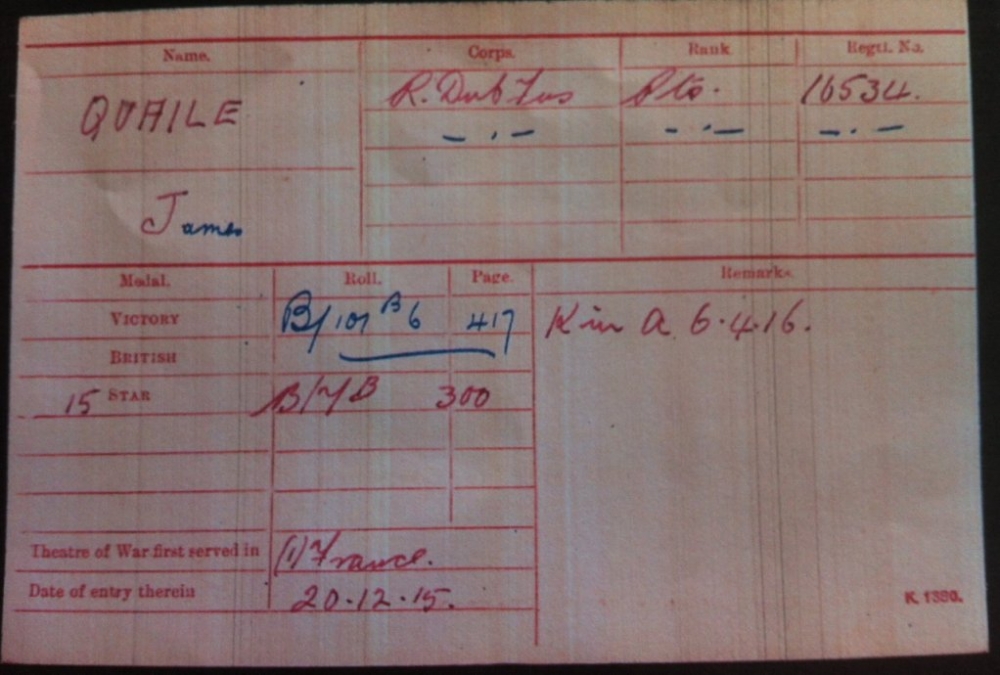 Name. Corps. Rank. Regtl. No.
QUAILE R. Dub Fus Pte. 16534.
— . — — . — — . —
James
Medal. Roll. Page. Remarks.
VICTORY B/107 B6 417 K in A 6.4.16.
BRITISH
15 STAR B/7B 300
Theatre of War first served in (1) France.
Date of entry therein 20.12.15.
K. 1380.